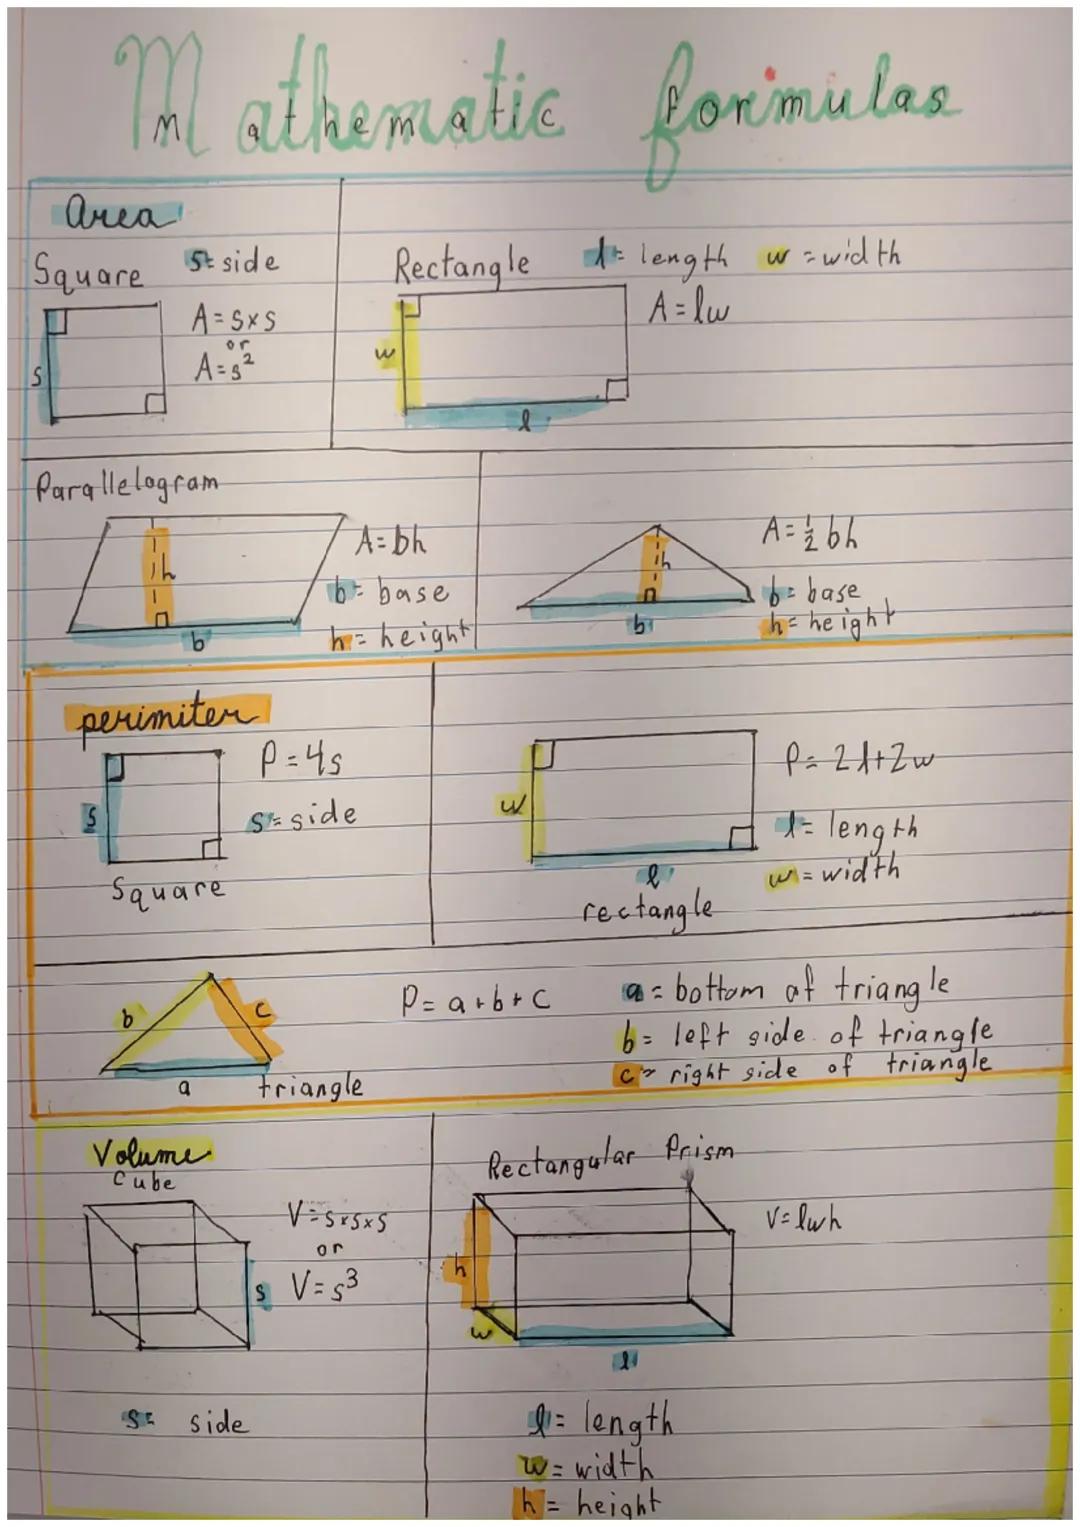 Mathematic formulas
Area
Square s = side
A = s×s
or
A = s²
s
Rectangle l = length w = width
A = lw
w
l
Parallelogram
h
b
A = bh
b = base
h = height
h
b
A = ½ bh
b = base
h = height
perimiter
P = 4s
s = side
s
Square
w
l
rectangle
P = 2l+2w
l = length
w = width
b
c
a
triangle
P = a+b+c
a = bottom of triangle
b = left side of triangle
c = right side of triangle
Volume
Cube
V = s×s×s
or
V = s³
s
s = side
Rectangular Prism
V = lwh
h
w
l
l = length
w = width
h = height